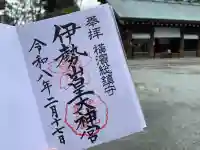 奉拝 横濱総鎮守
伊勢山皇大神宮
令和八年二月十七日